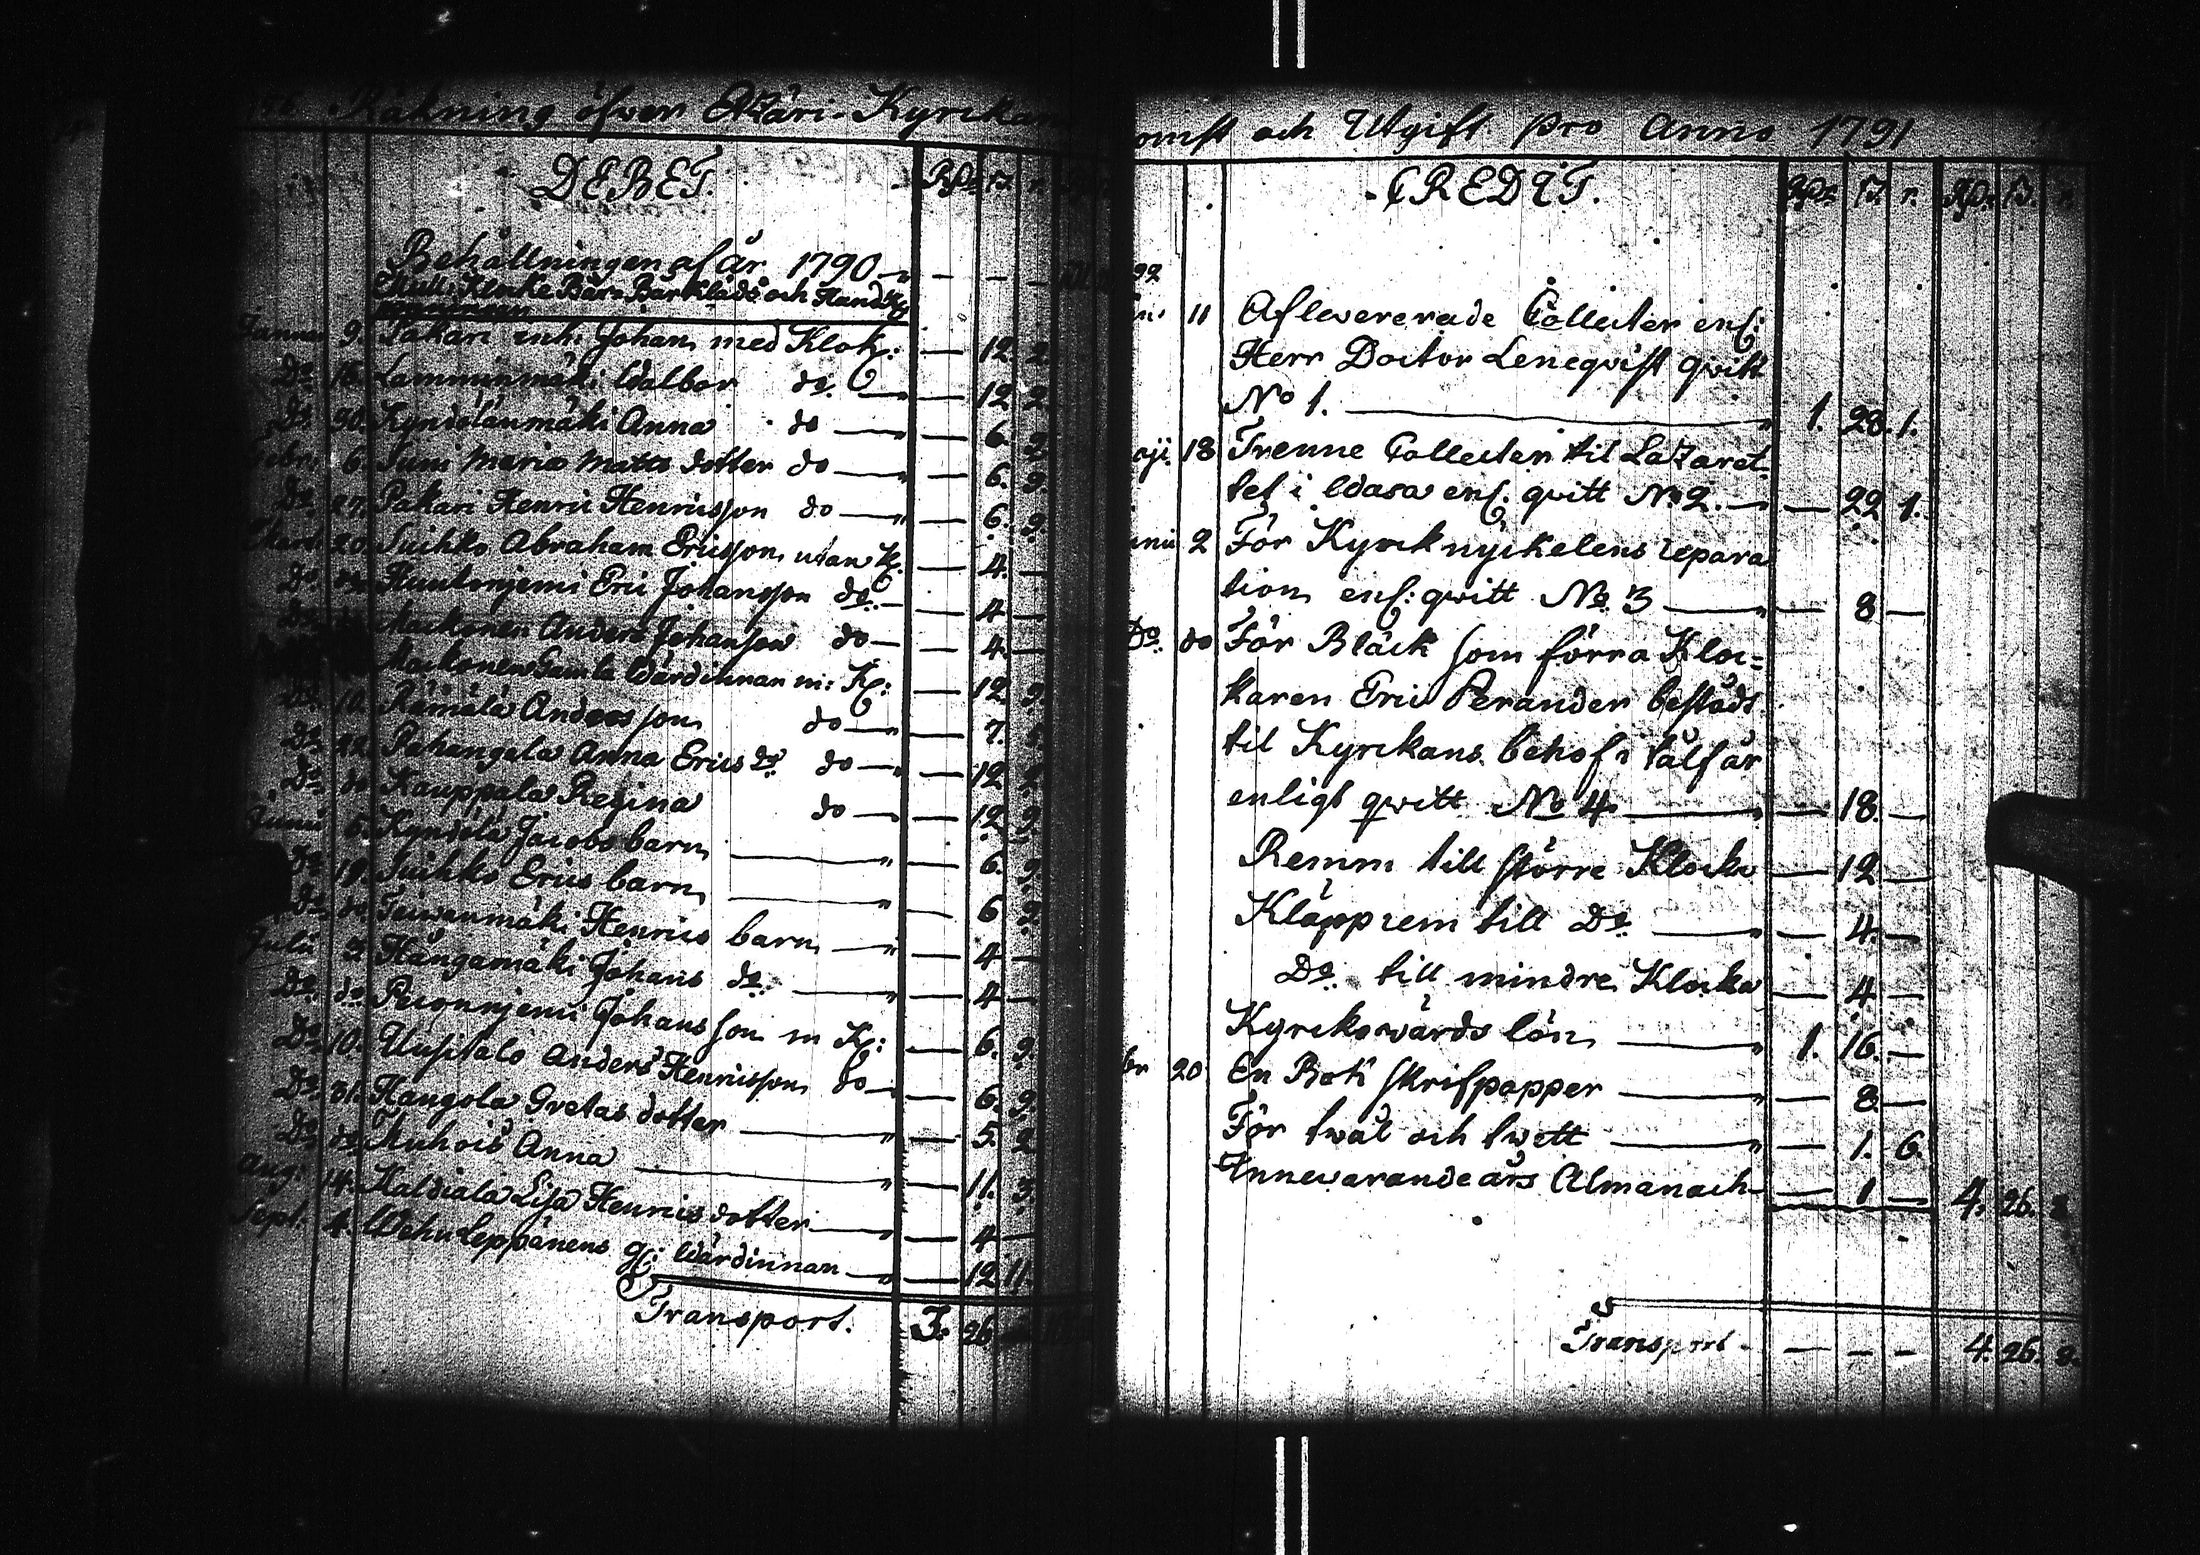 Räkning öfver Etzäri Kyrckan
DEBET. Rdr ß. r.
Behållningen af år 1790 — — —
Mull, Klocke Bår- Barkläds och Hand
Januar 9. Pakari inh: Johan med Klok: — 12. 2.
Do 16. Lamminmäki Walbor do — 12 2.
do 30. Kyndölänmäki Anna do — 6. 9
Febr: 6. Suni Maria Matts dotter do — 6. 9.
Do 27. Pakari Henric Henricsson do — 6. 9.
Mart 20. Suihko Abraham Ericsson utan K. — 4. —
Do do Huutonjemi Eric Johansson do — 4 —
Do Mackonen Anders Johansson do — 4. —
Mackonen Gamla Wärdinnan m: K: — 12 9.
Do 10. Rämälä Andersson do — 7.
Do 22 Pahangala Anna Erics dr do — 12
Do do Kauppala Regina do — 12 2
Junii 5. Kyndölä Jacobs barn — 6. 9
Do 19. Suihko Erics barn — 6 9.
do do Teiwanmäki Henrics barn — 4 —
Julii 3 Hångamäki Johans do — 4 —
Do do Peionnjemi Johansson m K: — 6. 9.
Do 10. Uusitalo Anders Henricsson do — 6. 9.
Do 31. Hangola Gretas dotter — 5. 2
Do do Kuhois Anna — 11. 3.
Aug: 14. Kaldiala Lisa Henrics dotter — 4 —
Sept: 4. Wehu Leppänens gl: Wärdinnan — 12. 11.
Transport. 3. 26
omst och Utgift pro Anno 1791
CREDIT. Rdr ß. r. Rdr ß. r.
11 Aflevererade Collecter enl:
Herr Doctor Lenqvist qvitt
No 1. — 1. 28. 1.
aji 18 Trenne Collecter til Lazaret
tet i Wasa enl. qvitt No 2. — — 22 1.
unii 2 För Kyrcknyckelens repara
tion enl: qvitt No 3 — — 8 —
Do do För Bläck som förra Kloc=
karen Eric Perander bestådt
til Kyrckans behof i tålf år
enligt qvitt No 4. — — 18. —
Remm till större Klocka — 12 —
Kläpprem till Do — — 4. —
Do till mindre Klocka — 4 —
Kyrckowärds lön — 1. 16. —
br 20 En Bok skrifpapper — — 8 —
För twål och twätt — — 1. 6.
Innewarande års Almanach — 1 — 4. 26. 8
Transport — — — 4. 26. 8.